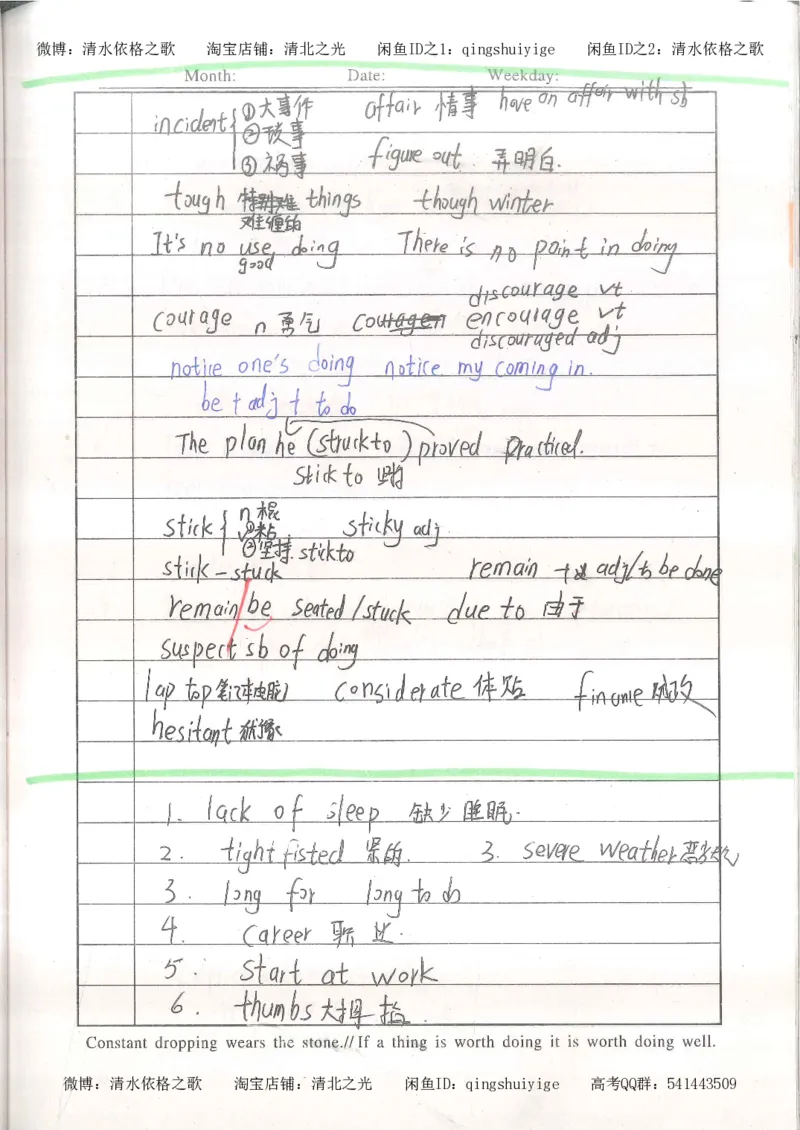 微博：清水依格之歌 淘宝店铺：清北之光 闲鱼ID之1：qingshuiyige 闲鱼ID之2：清水依格之歌
Month: Date: Weekday:
incident { ①大事件 affair 情事 have an affair with sb
②琐事
③祸事 figure out 弄明白.
tough 特别难 things though winter
难缠的
It's no use doing There is no point in doing
good
discourage vt
courage n 勇气 encourage vt
discouraged adj
notice one's doing notice my coming in.
be + adj + to do
The plan he (stuck to) proved practical.
stick to
stick { n 棍
v ①粘 sticky adj.
②坚持 stick to
stick - stuck remain adj/to be done
remain/be seated/stuck due to 由于
suspect sb of doing
lap top 笔记本电脑 considerate 体贴
hesitant 犹豫
1. lack of sleep 缺少睡眠.
2. tight fisted 紧的. 3. severe weather
3. long for long to do
4. career 职业.
5. start at work
6. thumbs 大拇指.
Constant dropping wears the stone.//If a thing is worth doing it is worth doing well.
微博：清水依格之歌 淘宝店铺：清北之光 闲鱼ID：qingshuiyige 高考QQ群：541443509